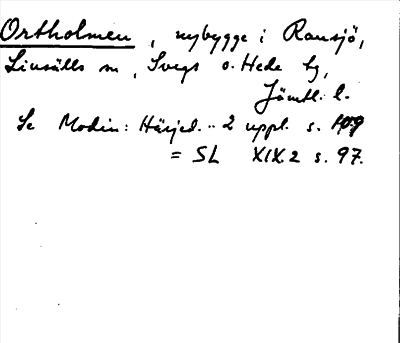 Ortholmen, nybygge i Ransjö,
Linsälls sn, Svegs o. Hede tg,
Jämtl. l.
Se Modin: Härjed. .. 2 uppl. s. 109
= SL XIX.2 s. 97.